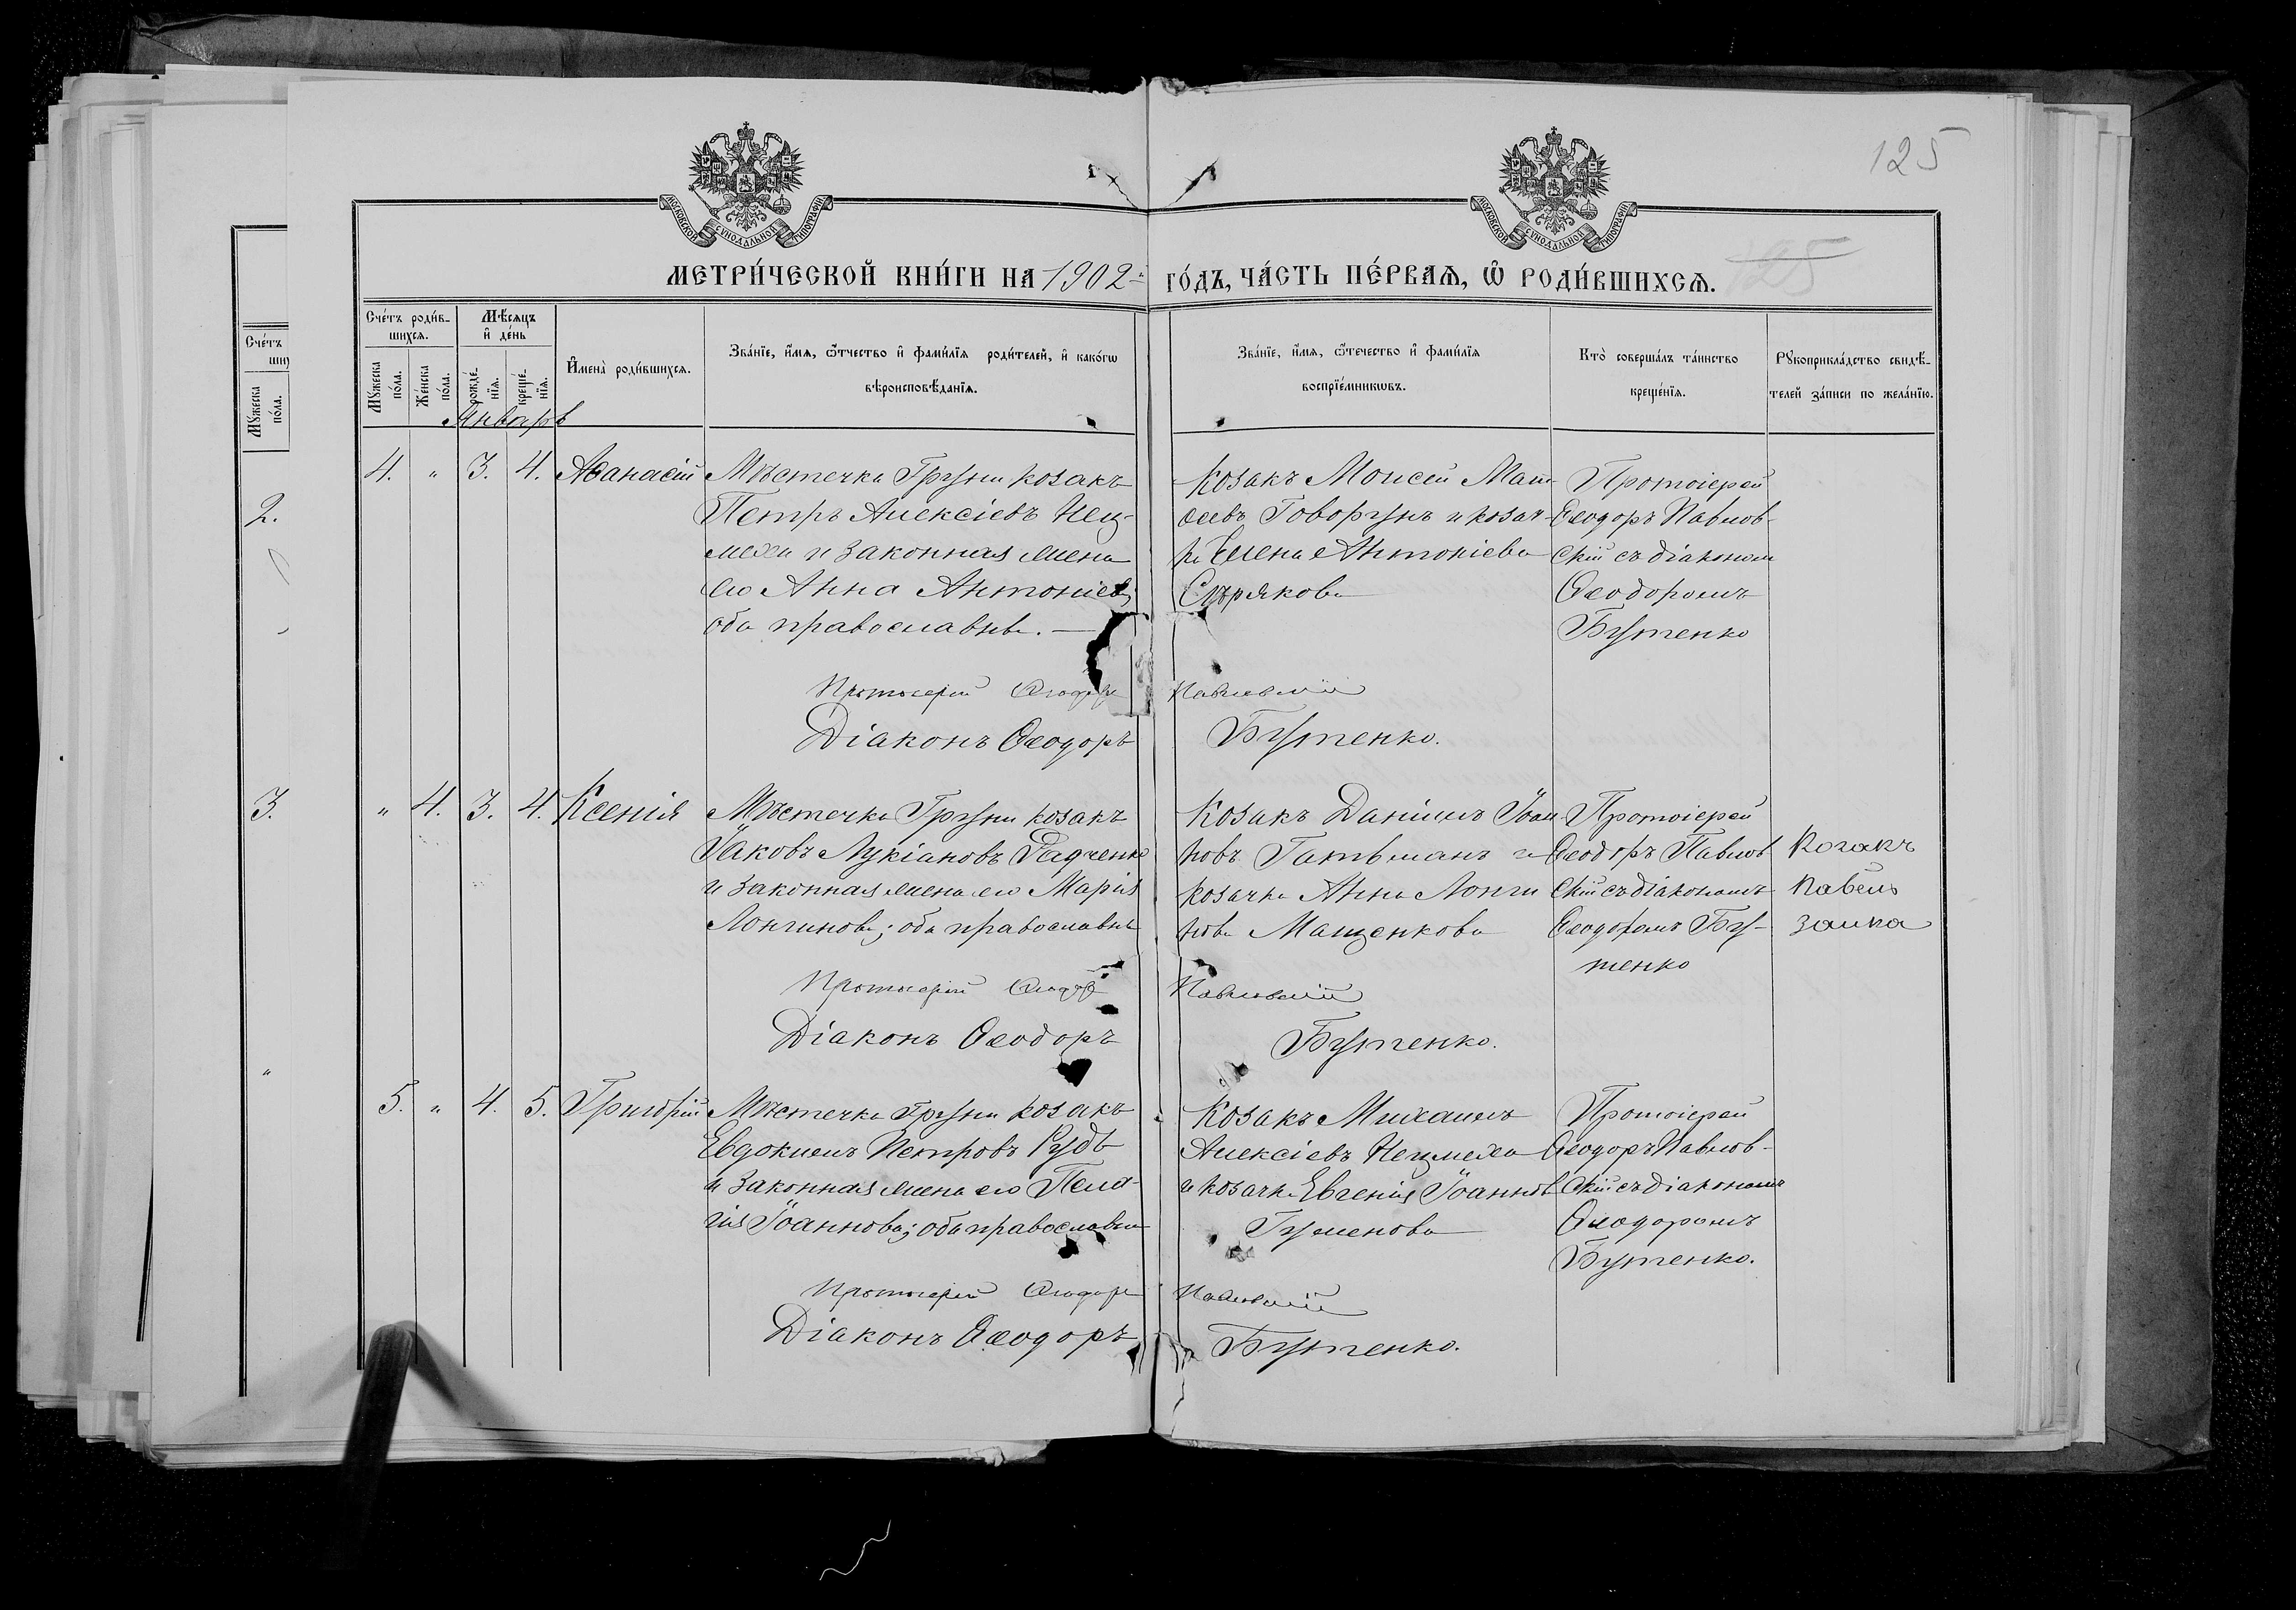 125
МОСКОВСКОЙ СѴНОДАЛЬНОЙ ТИПОГРАФІИ
МОСКОВСКОЙ СѴНОДАЛЬНОЙ ТИПОГРАФІИ
МЕТРИ́ЧЕСКОЙ КНИ́ГИ НА 1902 ГО́ДЪ, ЧА́СТЬ ПЕ́РВАѦ, Ѡ҆ РОДИ́ВШИХСѦ.
125
Сче́тъ роди́в-
шихсѧ.
Мѣ́сѧцъ
и҆ де́нь
Мꙋ́жеска
по́ла.
Же́нска
по́ла.
рожде́-
нїѧ.
креще́-
нїѧ.
И҆мена̀ роди́вшихсѧ.
Зва́нїе, и҆́мѧ, ѻ҆́тчество и҆ фами́лїѧ роди́телей, и҆ како́гѡ
вѣроисповѣ́данїѧ.
Зва́нїе, и҆́мѧ, ѻ҆́течество и҆ фами́лїѧ
воспрїе́мникѡвъ.
Кто̀ соверша́лъ та́инство
креще́нїѧ.
Рꙋкоприкла́дство свидѣ́-
телей за́писи по жела́нїю.
Январь
Сче́тъ
Мꙋ́жеска
по́ла.
2.
3.
"
4. " 3. 4. Аѳанасій
Мѣстечка Груни козакъ
Петръ Алексіевъ Нец-
меха и законная жена
его Анна Антоніева,
оба православны. —
Козакъ Моисей Мат-
ѳеевъ Говорунъ и козач-
ка Елена Антоніева
Сѣрякова
Протоіерей
Ѳеодоръ Павлов-
скій съ діакономъ
Ѳеодоромъ
Бутенко
Протоіерей Ѳеодоръ Павловскій
Діаконъ Ѳеодоръ Бутенко.
" 4. 3. 4. Ксенія
Мѣстечка Груни козакъ
Іаковъ Лукіановъ Радченко
и законная жена его Марія
Лонгинова; оба православны
Козакъ Даніилъ Іоан
новъ Гатьманъ и
козачка Анна Лонги
нова Мащенкова
Протоіерей
Ѳеодоръ Павлов
скій съ діакономъ
Ѳеодоромъ Бу-
тенко
Козакъ
Павелъ
Заика
Протоіерей Ѳеодоръ Павловскій
Діаконъ Ѳеодоръ Бутенко.
5. " 4. 5. Григорій
Мѣстечка Груни козакъ
Евдокимъ Петровъ Рудь
и законная жена его Пела-
гія Іоаннова; оба православны
Козакъ Михаилъ
Алексіевъ Нецмеха
и козачка Евгенія Іоаннова
Гуменова
Протоіерей
Ѳеодоръ Павлов-
скій съ діакономъ
Ѳеодоромъ
Бутенко.
Протоіерей Ѳеодоръ Павловскій
Діаконъ Ѳеодоръ Бутенко.